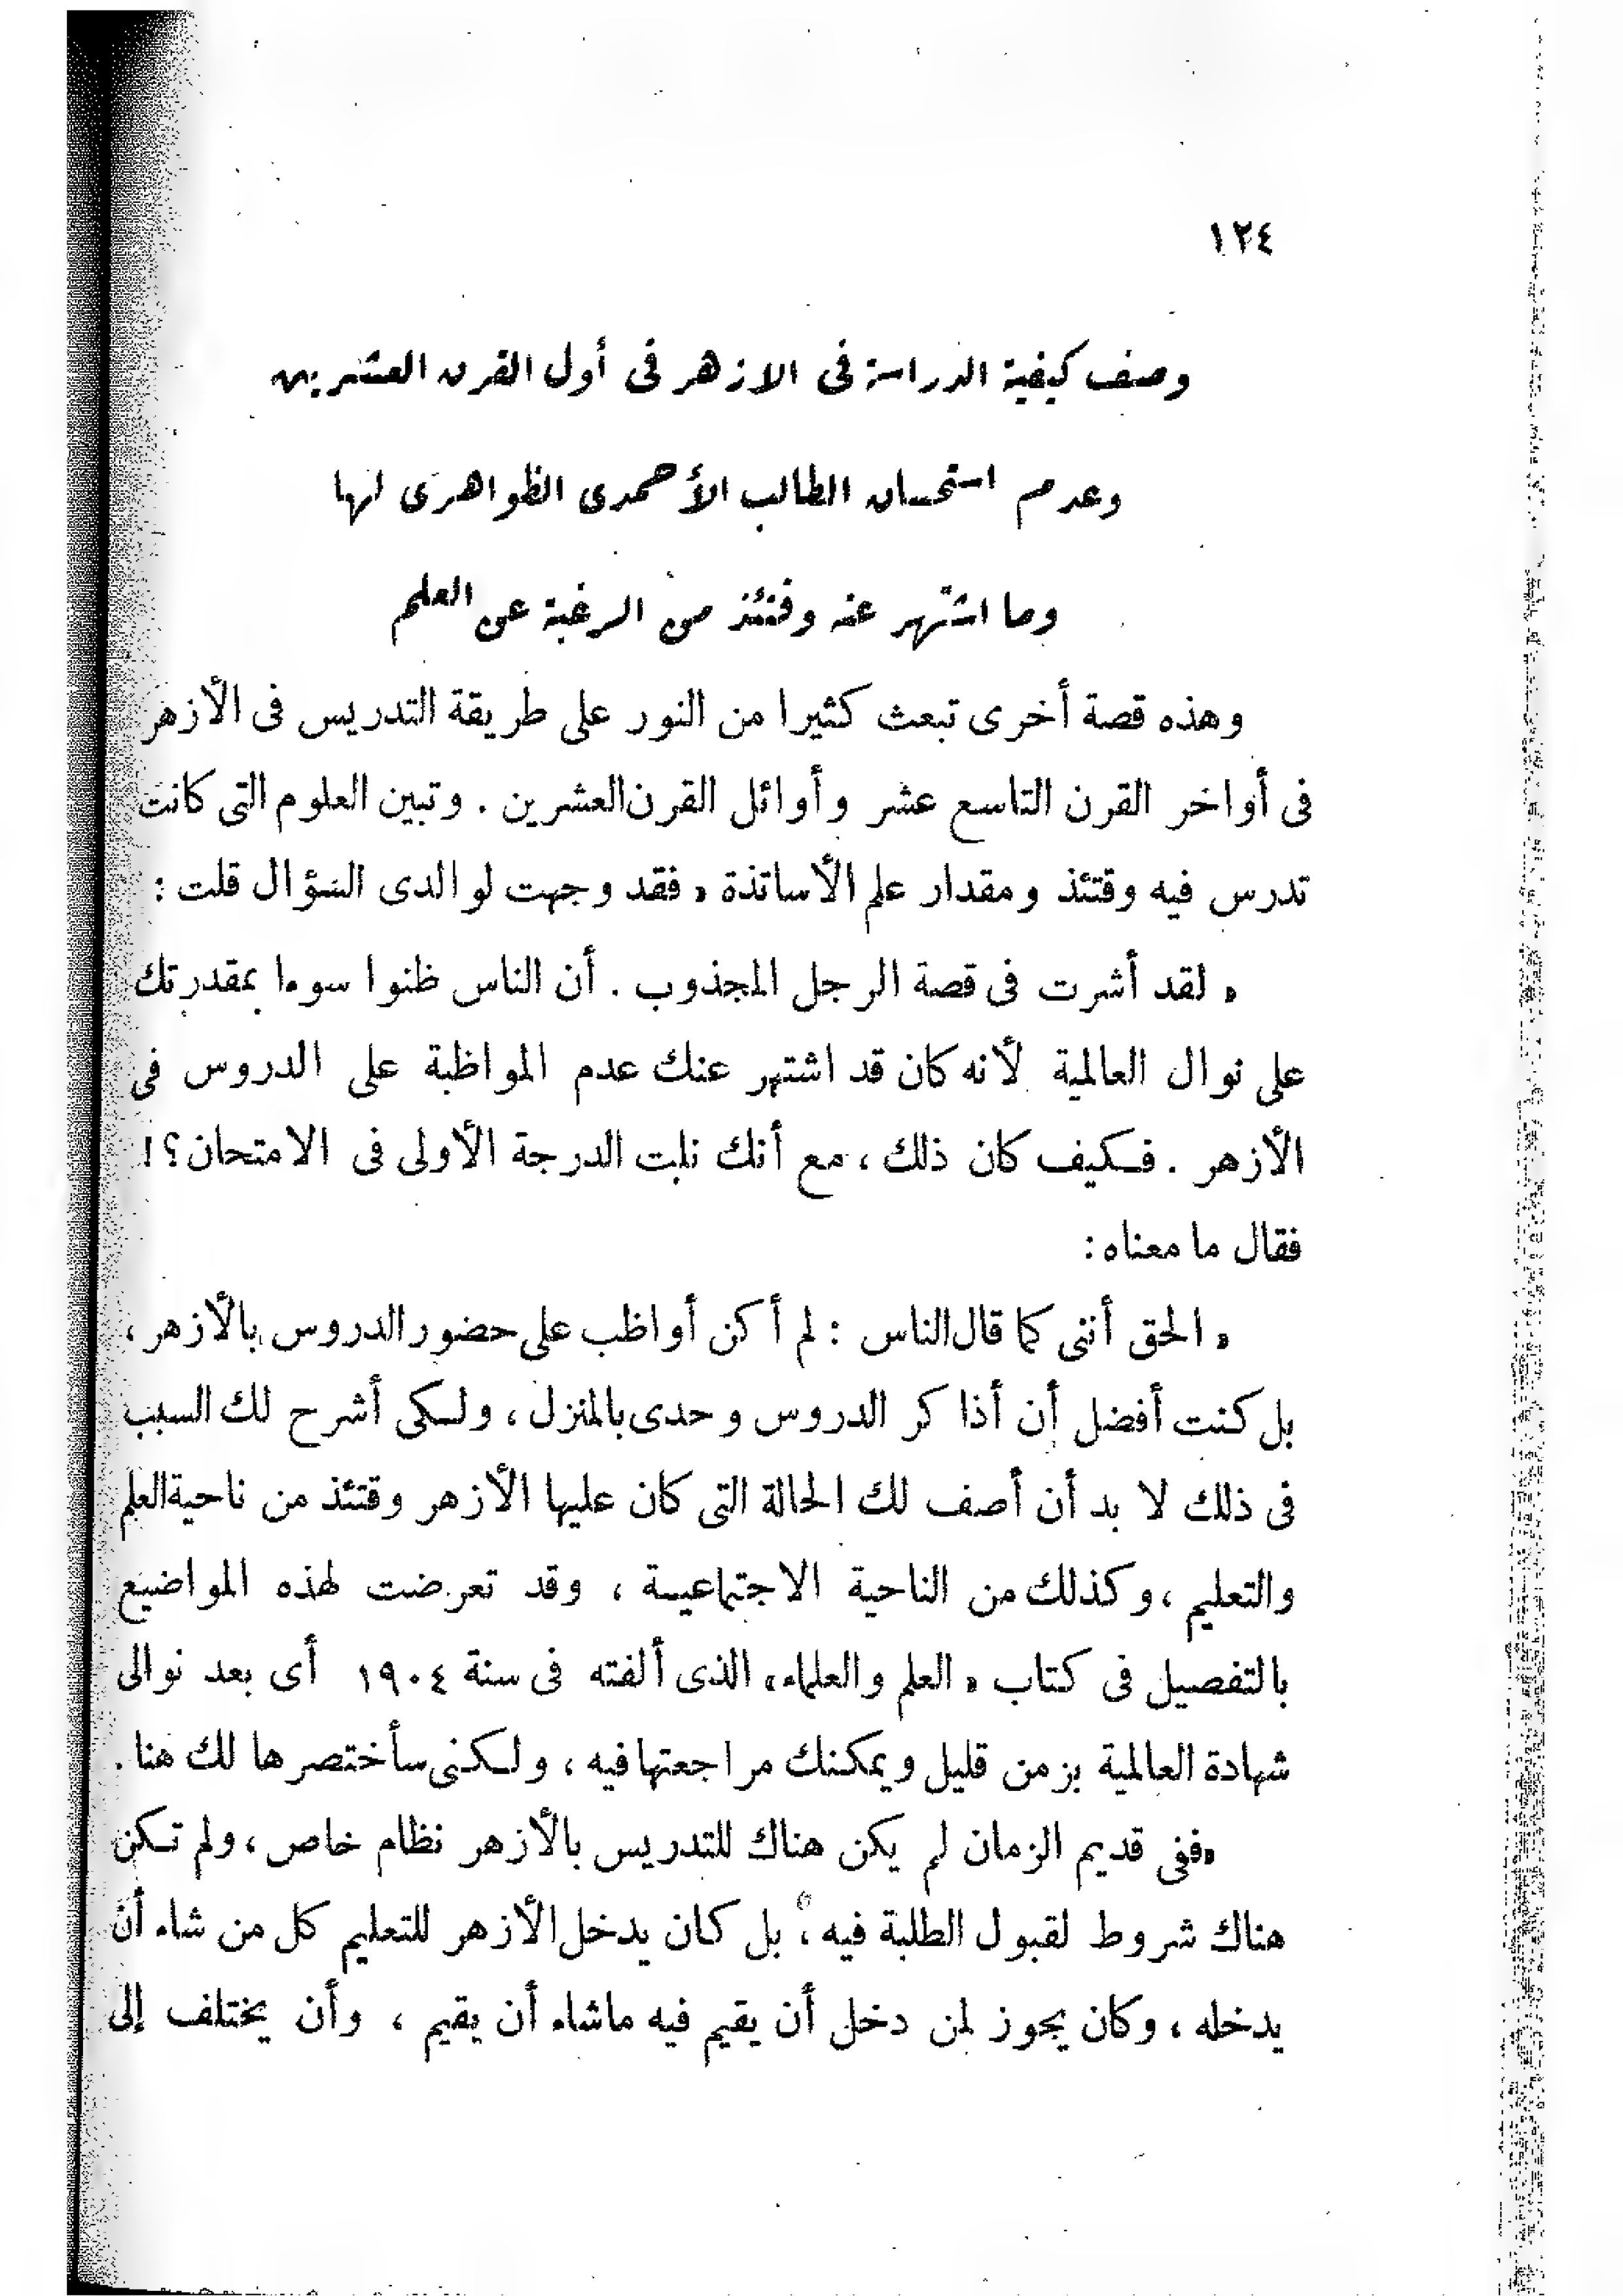 ١٢٤
وصف كيفية الدراسة فى الازهر فى أول القرن العشرين
وعدم استحسان الطالب الأحمدى الظواهرى لها
وما اشتهر عنه وقتئذ من الرغبة عن العلم
وهذه قصة أخرى تبعث كثيرا من النور على طريقة التدريس فى الأزهر
فى أواخر القرن التاسع عشر وأوائل القرن العشرين . وتبين العلوم التى كانت
تدرس فيه وقتئذ ومقدار علم الأساتذة « فقد وجهت لوالدى السؤال قلت :
« لقد أشرت فى قصة الرجل المجذوب . أن الناس ظنوا سوءا بمقدرتك
على نوال العالمية لأنه كان قد اشتهر عنك عدم المواظبة على الدروس فى
الأزهر . فكيف كان ذلك ، مع أنك نلت الدرجة الأولى فى الامتحان ؟ !
فقال ما معناه :
« الحق أننى كما قال الناس : لم أكن أواظب على حضور الدروس بالأزهر ،
بل كنت أفضل أن أذاكر الدروس وحدى بالمنزل ، ولكى أشرح لك السبب
فى ذلك لا بد أن أصف لك الحالة التى كان عليها الأزهر وقتئذ من ناحية العلم
والتعليم ، وكذلك من الناحية الاجتماعية ، وقد تعرضت لهذه المواضيع
بالتفصيل فى كتاب « العلم والعلماء » الذى ألفته فى سنة ١٩٠٤ أى بعد نوالى
شهادة العالمية بزمن قليل ويمكنك مراجعتها فيه ، ولكنى سأختصرها لك هنا .
« ففى قديم الزمان لم يكن هناك للتدريس بالأزهر نظام خاص ، ولم تكن
هناك شروط لقبول الطلبة فيه ، بل كان يدخل الأزهر للتعليم كل من شاء أن
يدخله ، وكان يجوز لمن دخل أن يقيم فيه ماشاء أن يقيم ، وأن يختلف إلى